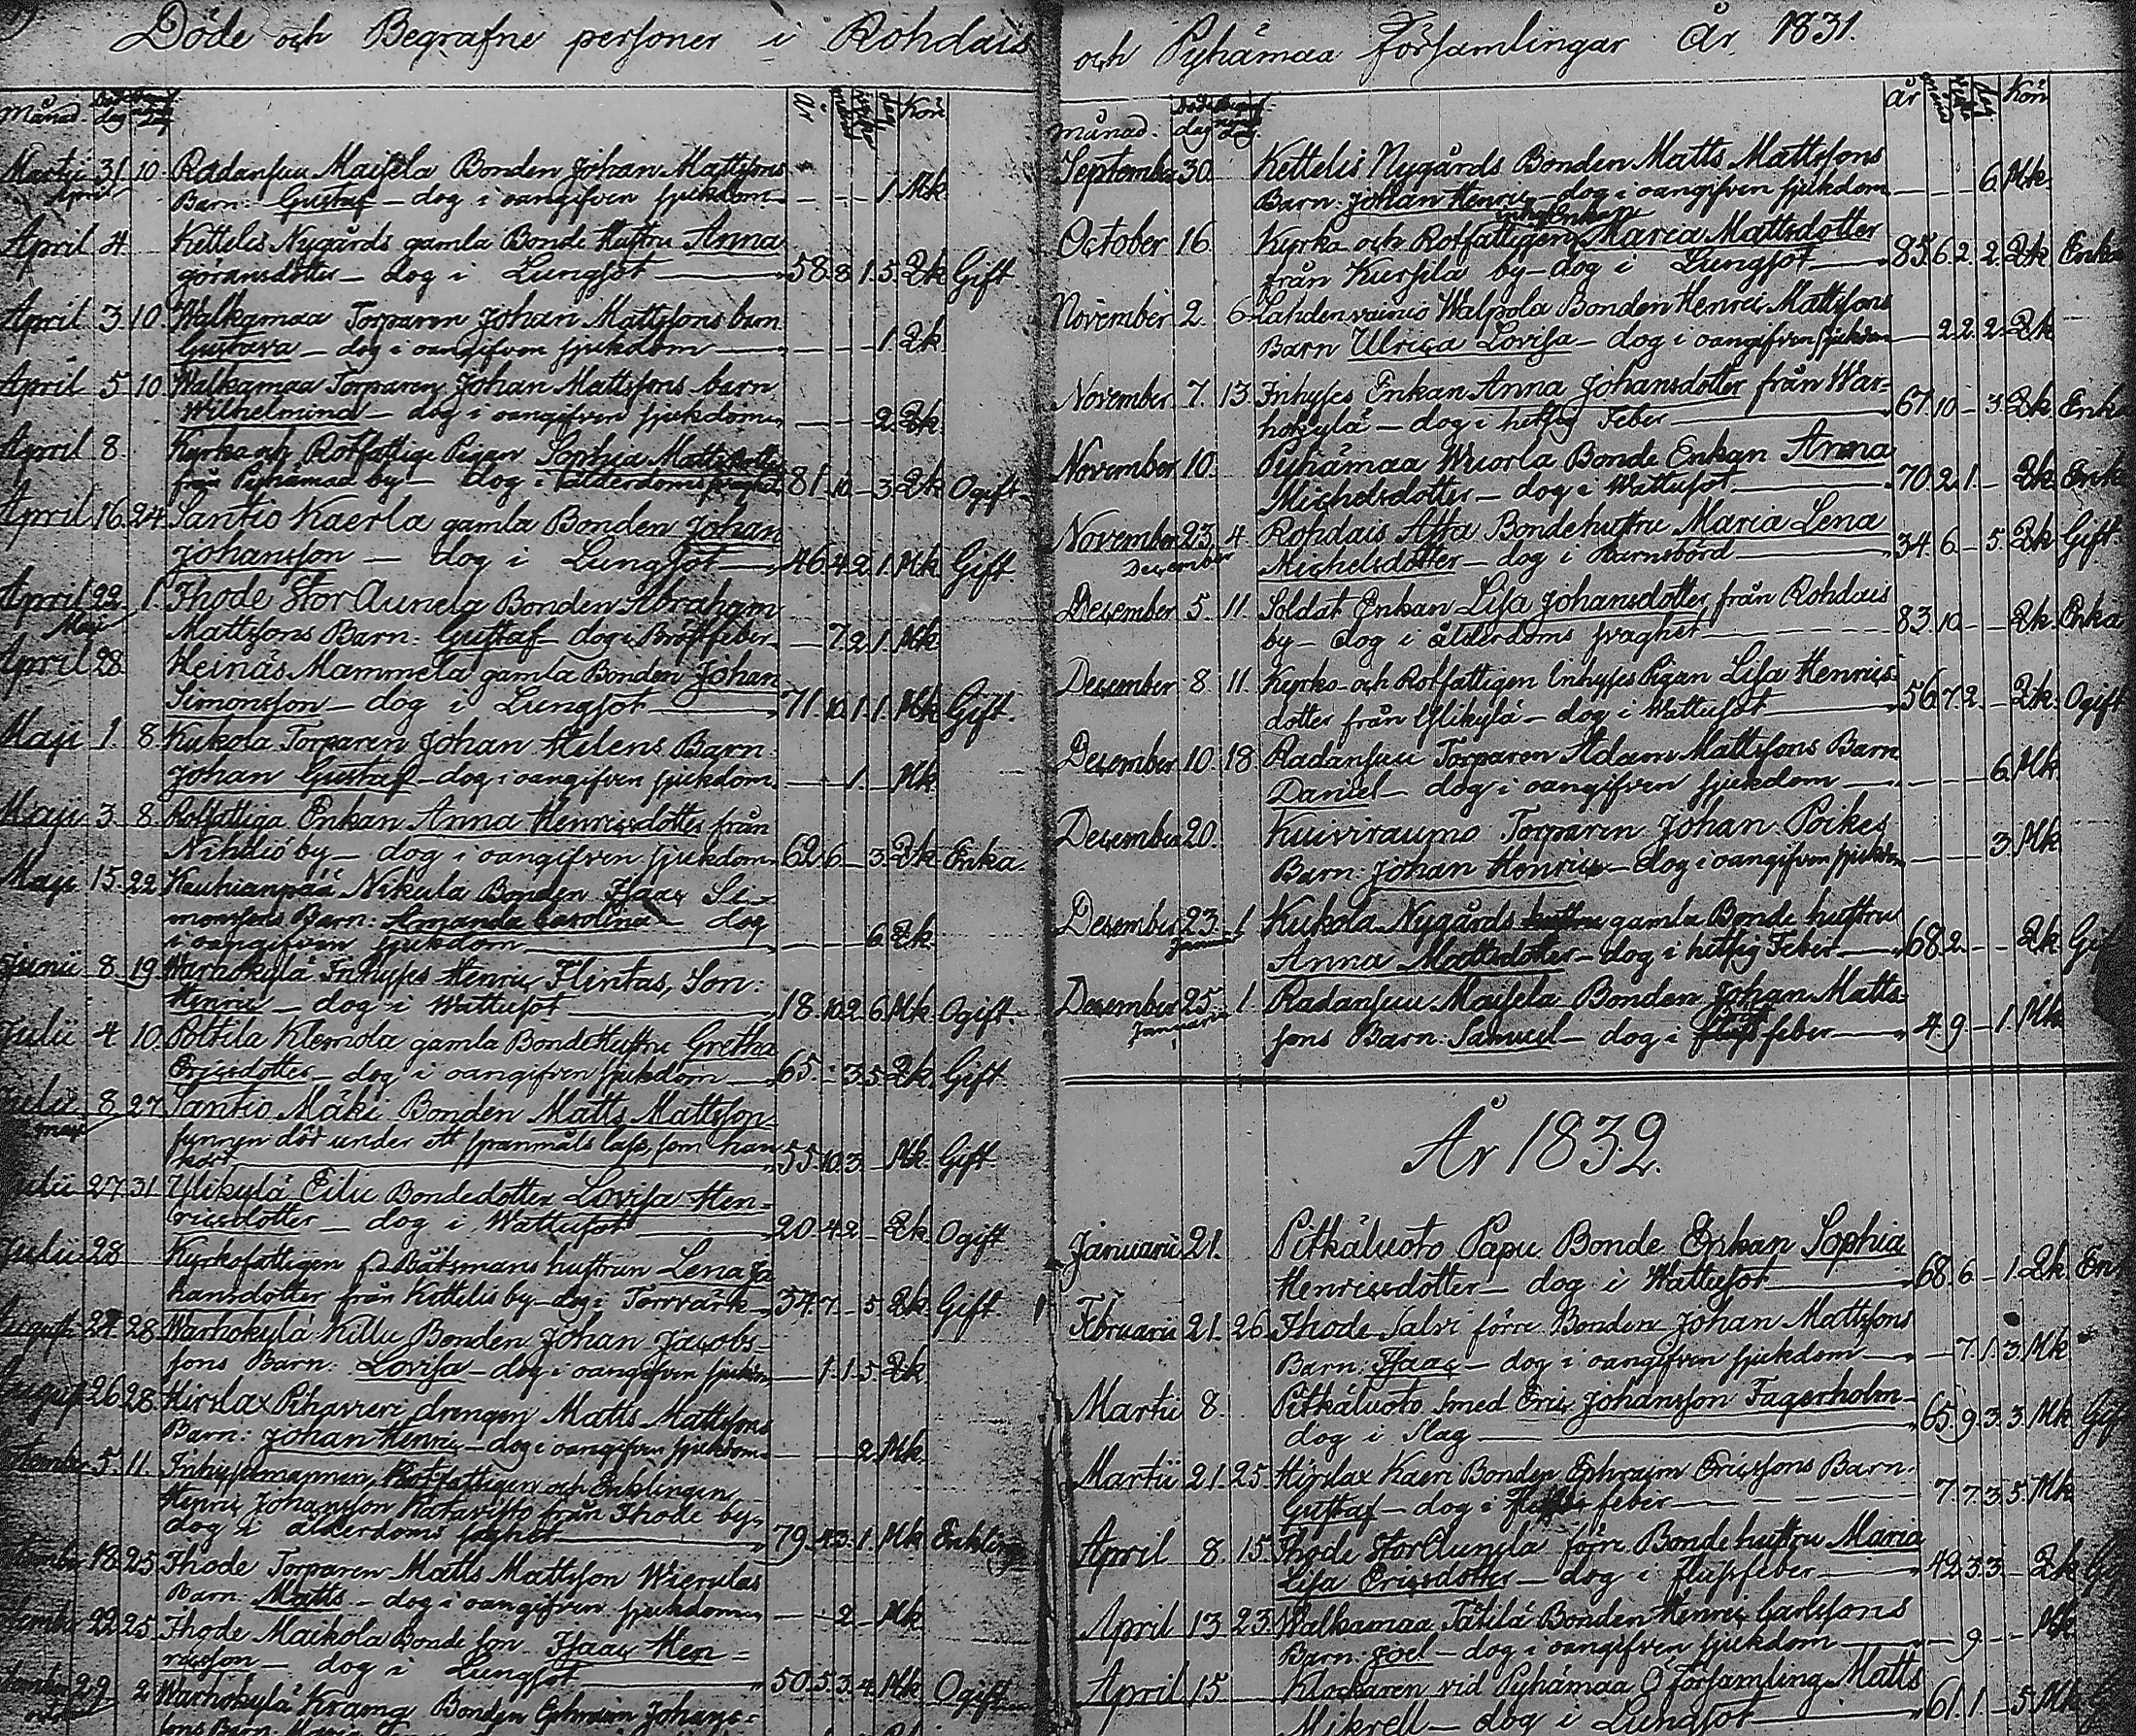 Döde och Begrafne personer i Rohdais
Månad. dag År Kön
Martii 31 10. Radansuu Maisela Bonden Johan Mattssons
April Barn: Gustaf — dog i oangifven sjukdom — 1. Mk.
April 4 Kettelis Nygårds gamla Bonde Hustru Anna
göransdotter — dog i Lungsot — 58. 8 1. 5. Qk Gift.
April 3. 10. Walkamaa Torparen Johan Mattssons barn
Gustava — dog i oangifven sjukdom — 1. Qk.
April 5 10. Walkamaa Torparen Johan Mattssons barn
Wilhelmina — dog i oangifven sjukdom — 2. Qk.
April 8. Kyrko och Rotfattige Pigan Sophia Mattsdotter
från Pyhämaa by — dog i ålderdoms 81. 10. — 3. Qk Ogift.
April 16. 24. Santio Kaerla gamla Bonden Johan
Johansson — dog i Lungsot — 46. 4. 2. 1. Mk Gift.
April 22. 1. Ihode Stor Aunela Bonden Abraham
Maji Mattssons Barn: Gustaf — dog i Bröstfeber — 7. 2. 1. Mk.
April 28. Heinäs Mammela gamla Bonden Johan
Simonsson — dog i Lungsot — 71. 10. 1. 1. Mk Gift.
Maji 1. 8. Kukola Torparen Johan Helens Barn:
Johan Gustaf — dog i oangifven sjukdom. — 1. Mk.
Maji 3. 8. Rotfattiga Enkan Anna Henricsdotter från
Nihtiö by — dog i oangifven sjukdom — 62. 6. — 3. Qk Enka.
Maji 15. 22 Kauhianpää Nikula Bonden Isaac Si-
monssons Barn: Amanda Carolina — dog
i oangifven sjukdom — 6. Qk.
Junii 8. 19 Warhokylä Inhyses Henric Flintas, Son:
Henric — dog i Wattusot — 18. 10. 2. 6. Mk Ogift.
Julii 4 10. Polttila Klemola gamla Bonde Hustru Gretha
Ericsdotter — dog i oangifven sjukdom — 65. — 3. 5. Qk. Gift.
Julii 8. 27 Santio Mäki Bonden Matts Mattsson
funnen död under ett spanmåls lass, som han
kört — 55. 10. 3. — Mk. Gift.
Julii 27. 31. Ylikylä Eilu Bondedotter Lovisa Hen-
ricsdotter — dog i Wattusot — 20. 4. 2. — Qk Ogift.
Julii 28 Kyrkofattigen Båtsmans hustrun Lena Jo
hansdotter från Kettelis by — dog i Torrvärk — 34. 7. — 5. Qk Gift.
August 27. 28 Warhokylä Killu Bonden Johan Jacobs-
sons Barn: Lovisa — dog i oangifven sjukdom — 1. 1. 5. Qk
August 26 28. Hirslax Pihavieri drengen Matts Mattssons
Barn: Johan Henric — dog i oangifven sjukdom — 2. Mk.
5. 11. Inhysesmannen, Rotfattigen och Enklingen
Henric Johansson Katavisto från Ihode by —
dog i ålderdoms — 79. 4. 3. 1. Mk Enkling
18. 25. Ihode Torparen Matts Mattsson Wierulas
Barn: Matts — dog i oangifven sjukdom — 2. — Mk
22 25 Ihode Maikola Bonde son Isaac Hen =
ricsson — dog i Lungsot — 50. 5. 3. 4. Mk Ogift.
29. 2. Warhokylä Krama Bonden Ephraim Johans =
sons Barn: Maria
och Pyhämaa Församlingar År 1831.
Månad. dag År Kön
September 30. Kettelis Nygårds Bonden Matts Mattssons
Barn: Johan Henric — dog i oangifven sjukdom — 6. Mk.
October 16. Kyrko och Rotfattigen Enkan Maria Mattsdotter
från Kursila by — dog i Lungsot — 85. 6. 2. 2. Qk Enka
November 2. 6. Lahdenvainio Walpola Bonden Henric Mattssons
Barn Ulrica Lovisa — dog i oangifven sjukdom — 2. 2. 2. Qk
November 7. 13. Inhyses Enkan Anna Johansdotter från War-
hokylä — dog i hetsig Feber — 67. 10 — 3. Qk. Enka
November 10. Pyhämaa Wuorla Bonde Enkan Anna
Michelsdotter — dog i Wattusot — 70. 2. 1. — Qk Enk
November 23. 4. Rohdais Affa Bondehustru Maria Lena
December Michelsdotter — dog i Barnsbörd — 34. 6. — 5. Qk Gift.
December 5. 11. Soldat Enkan Lisa Johansdotter från Rohdais
by — dog i ålderdoms svaghet — 83. 10. — Qk. Enka
December 8. 11. Kyrko- och Rotfattigen Inhyses Pigan Lisa Henrics-
dotter från Ylikylä — dog i Wattusot — 56. 7. 2. — Qk. Ogift
December 10. 18. Radansuu Torparen Adam Mattssons Barn
Daniel — dog i oangifven sjukdom — 6. Mk.
December 20. Kuiviraumo Torparen Johan Poikes
Barn: Johan Henric — dog i oangifven sjukdom — 3. Mk
December 23. 1. Kukola Nygårds gamla Bonde hustru
Januarii Anna Mattsdotter — dog i hetsig Feber — 68. 2. — Qk Gif
December 25. 1. Radansuu Maisela Bonden Johan Matts-
Januarii sons Barn: Samuel — dog i fluss feber — 4. 9. — 1. Mk
År 1832.
Januarii 21. Pitkäluoto Papu Bonde Enkan Sophia
Henricsdotter — dog i Wattusot — 68. 6 — 1. Qk. En
Februarii 21. 26. Ihode Salvi förre Bonden Johan Mattssons
Barn: Isaac — dog i oangifven sjukdom — 7. 1. 3. Mk
Martii 8. Pitkäluoto Smed Eric Johansson Fagerholm —
dog i Slag — 65. 9. 3. 3. Mk Gif
Martii 21. 25. Hirslax Kaeri Bonden Ephraim Ericssons Barn:
Gustaf — dog i feber — 7. 7. 3. 5. Mk
April 8. 15. Ihode Stor Aunela förre Bonde hustru Maria
Lisa Ericsdotter — dog i flussfeber — 42. 3. 3. — Qk Gi
April 13 23. Walkamaa Tätilä Bonden Henric Carlssons
Barn: Joel — dog i oangifven sjukdom — 9. — Mk.
April 15. Klockaren vid Pyhämaa Ö Församling Matts
Mikrell — dog i Lungsot — 61. 1. — 5. Mk G